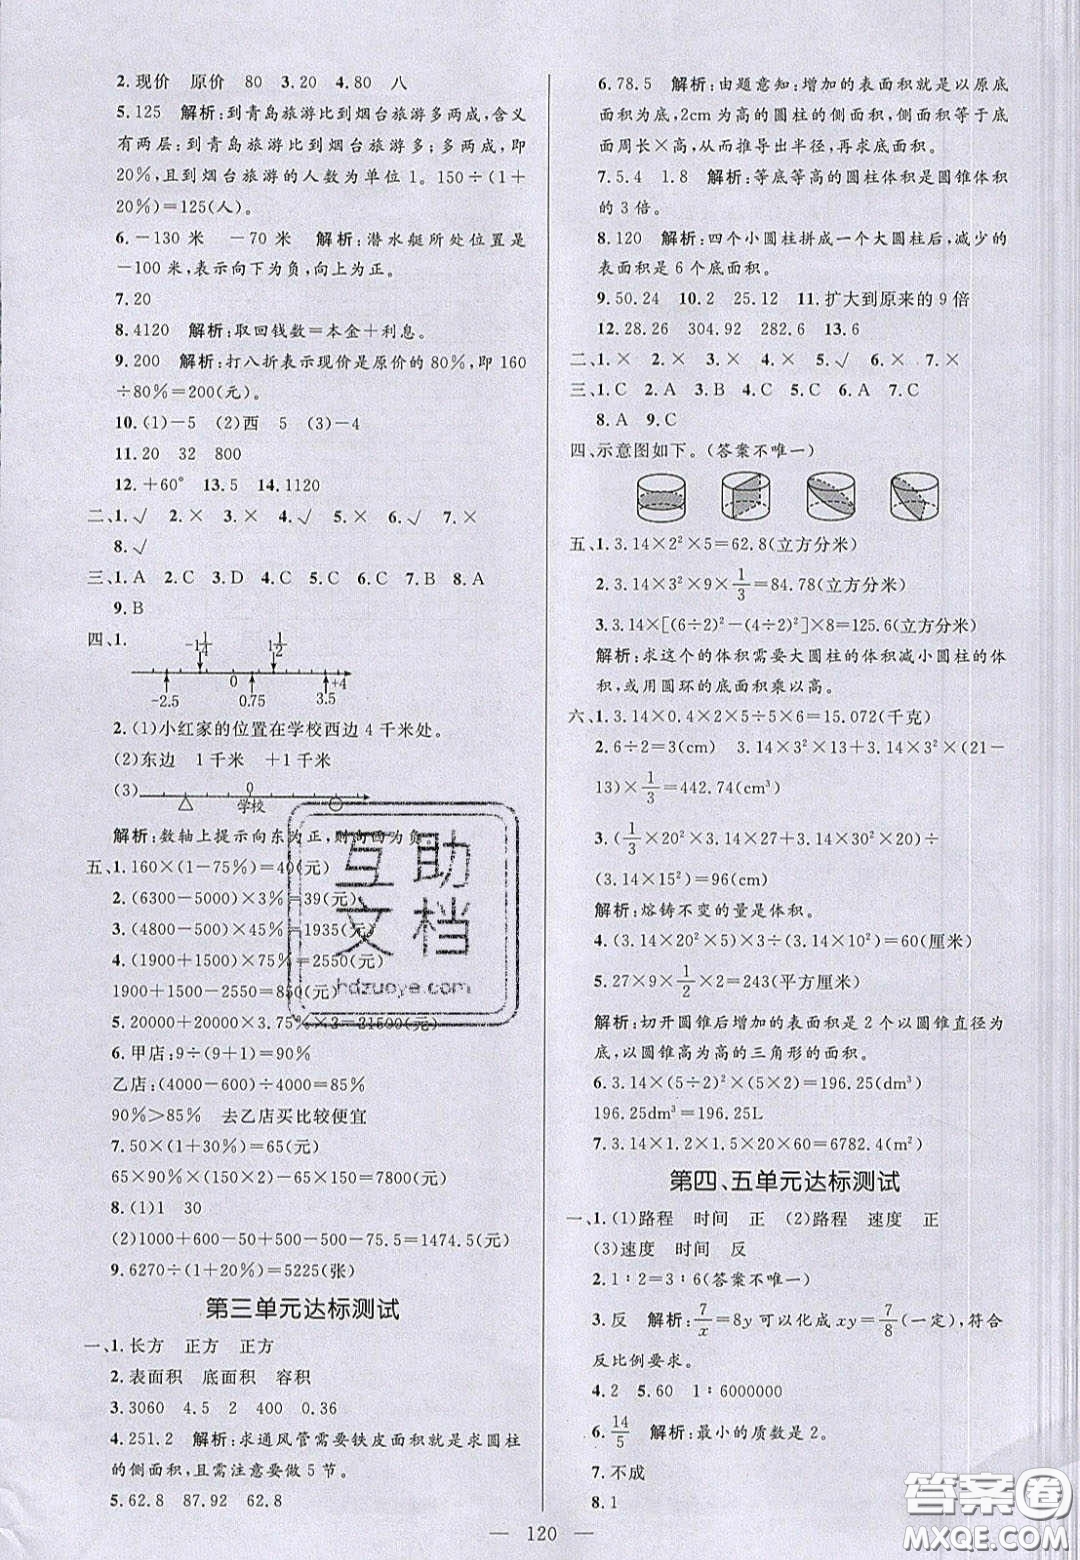 2.现价 原价 80 3.20 4.80 八
5.125 解析:到青岛旅游比到烟台旅游多两成,含义
有两层:到青岛旅游比到烟台旅游多;多两成,即
20%,且到烟台旅游的人数为单位1。150÷(1+
20%)=125(人)。
6.-130米 -70米 解析:潜水艇所处位置是
-100米,表示向下为负,向上为正。
7.20
8.4120 解析:取回钱数=本金+利息。
9.200 解析:打八折表示现价是原价的80%,即160
÷80%=200(元)。
10.(1)-5 (2)西 5 (3)-4
11.20 32 800
12.+60° 13.5 14.1120
二、1.√ 2.× 3.× 4.× 5.√ 6.√ 7.×
8.√
三、1.A 2.C 3.D 4.C 5.C 6.B 7.A 8.C
9.B
四、1.
-1 1/4 1 1/2
0 +4
-2.5 0.75 3.5
2.(1)小红家的位置在学校西边4千米处。
(2)东边 1千米 +1千米
(3) 0
学校
解析:数轴上提示向东为正,则向西为负。
五、1.160×(1-75%)=40(元)
2.(6300-5000)×3%=39(元)
3.(4800-500)×45%=1935(元)
4.(1900+1500)×75%=2550(元)
1900+1500-2550=850(元)
5.20000+20000×3.75%×2=21500(元)
6.甲店:9÷(9+1)=90%
乙店:(4000-600)÷4000=85%
90%>85% 去乙店买比较便宜
7.50×(1+30%)=65(元)
65×90%×150-65×15=7800(元)
8.(1)1 30
(2)1000+600-50+500-500-75.5=1474.5(元)
9.6270÷(1+20%)=5225(张)
第三单元达标测试
一、1.长方 正方 正方
2.表面积 底面积 容积
3.3060 4.5 2 400 0.36
4.251.2 解析:求通风管需要铁皮面积就是求圆柱
的侧面积,且需注意要做5节。
5.62.8 87.92 62.8
6.78.5 解析:由题意知:增加的表面积就是以原底
面积为底,2cm为高的圆柱的侧面积,侧面积等于底
面周长×高,从而推导出半径,再求底面积。
7.5.4 1.8 解析:等底等高的圆柱体积是圆锥体积
的3倍。
8.120 解析:四个小圆柱拼成一个大圆柱后,减少的
表面积是6个底面积。
9.50.24 10.2 25.12 11.扩大到原来的9倍
12.28.26 304.92 282.6 13.6
二、1.× 2.× 3.× 4.× 5.√ 6.× 7.×
三、1.C 2.A 3.B 4.C 5.C 6.A 7.C
8.A 9.C
四、示意图如下。(答案不唯一)
五、1.3.14×2²×5=62.8(立方分米)
2.3.14×3²×9×1/3=84.78(立方分米)
3.3.14×[(6÷2)²-(4÷2)²]×8=125.6(立方分米)
解析:求这个的体积需要大圆柱的体积减小圆柱的体
积,或用圆环的底面积乘以高。
六、1.3.14×0.4×2×5÷5×6=15.072(千克)
2.6÷2=3(cm) 3.14×3²×13+3.14×3²×(21-
13)×1/3=442.74(cm³)
3.(1/3×20²×3.14×27+3.14×30²×20)÷
(3.14×15²)=96(cm)
解析:熔铸不变的量是体积。
4.(3.14×20²×5)×3÷(3.14×10²)=60(厘米)
5.27×9×1/2×2=243(平方厘米)
解析:切开圆锥后增加的表面积是2个以圆锥直径为
底,以圆锥高为高的三角形的面积。
6.3.14×(5÷2)²×(5×2)=196.25(dm³)
196.25dm³=196.25L
7.3.14×1.2×1.5×20×60=6782.4(m²)
第四、五单元达标测试
一、1.(1)路程 时间 正 (2)路程 速度 正
(3)速度 时间 反
2.1∶2=3∶6(答案不唯一)
3.反 解析:7/x=8y可以化成xy=7/8(一定),符合
反比例要求。
4.2 5.60 1∶6000000
6.14/5 解析:最小的质数是2。
7.不成
8.1
120
互助文档
hdzuoye.com
答案圈
MXQE.COM